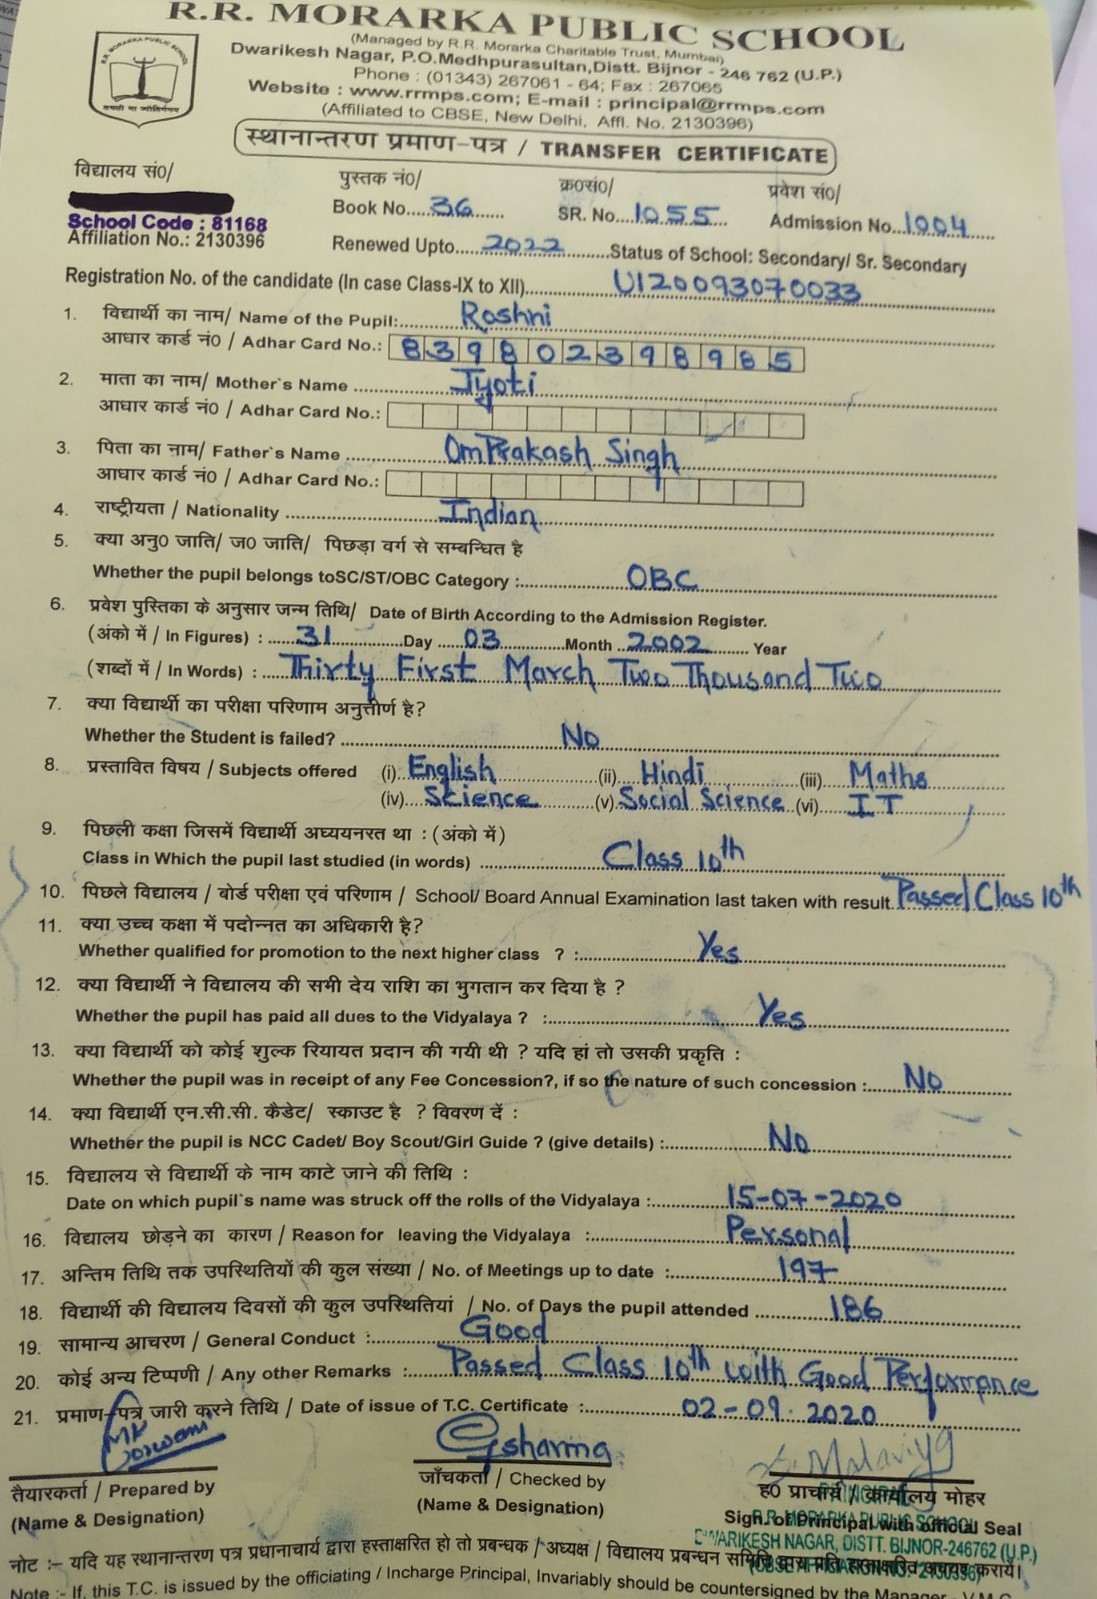 R.R. MORARKA PUBLIC SCHOOL
(Managed by R.R. Morarka Charitable Trust, Mumbai)
Dwarikesh Nagar, P.O.Medhpurasultan,Distt. Bijnor - 246 762 (U.P.)
Phone : (01343) 267061 - 64; Fax : 267065
Website : www.rrmps.com; E-mail : principal@rrmps.com
(Affiliated to CBSE, New Delhi, Affl. No. 2130396)
स्थानान्तरण प्रमाण-पत्र / TRANSFER CERTIFICATE
विद्यालय सं0/ पुस्तक नं0/ क्र0सं0/ प्रवेश सं0/
Book No. 36 SR. No. 1055 Admission No. 1004
School Code : 81168
Affiliation No.: 2130396 Renewed Upto 2022 Status of School: Secondary/ Sr. Secondary
Registration No. of the candidate (In case Class-IX to XII) U120093070033
1. विद्यार्थी का नाम/ Name of the Pupil: Roshni
आधार कार्ड नं0 / Adhar Card No.: 839802398985
2. माता का नाम/ Mother's Name Jyoti
आधार कार्ड नं0 / Adhar Card No.:
3. पिता का नाम/ Father's Name OmPrakash Singh
आधार कार्ड नं0 / Adhar Card No.:
4. राष्ट्रीयता / Nationality Indian
5. क्या अनु0 जाति/ ज0 जाति/ पिछड़ा वर्ग से सम्बन्धित है
Whether the pupil belongs toSC/ST/OBC Category : OBC
6. प्रवेश पुस्तिका के अनुसार जन्म तिथि/ Date of Birth According to the Admission Register.
(अंको में / In Figures) : 31 Day 03 Month 2002 Year
(शब्दों में / In Words) : Thirty First March Two Thousand Two
7. क्या विद्यार्थी का परीक्षा परिणाम अनुत्तीर्ण है?
Whether the Student is failed? No
8. प्रस्तावित विषय / Subjects offered (i) English (ii) Hindi (iii) Maths
(iv) Science (v) Social Science (vi) IT
9. पिछली कक्षा जिसमें विद्यार्थी अघ्ययनरत था : (अंको में)
Class in Which the pupil last studied (in words) Class 10th
10. पिछले विद्यालय / बोर्ड परीक्षा एवं परिणाम / School/ Board Annual Examination last taken with result. Passed Class 10th
11. क्या उच्च कक्षा में पदोन्नत का अधिकारी है?
Whether qualified for promotion to the next higher class ? : Yes
12. क्या विद्यार्थी ने विद्यालय की सभी देय राशि का भुगतान कर दिया है ?
Whether the pupil has paid all dues to the Vidyalaya ? : Yes
13. क्या विद्यार्थी को कोई शुल्क रियायत प्रदान की गयी थी ? यदि हां तो उसकी प्रकृति :
Whether the pupil was in receipt of any Fee Concession?, if so the nature of such concession : No
14. क्या विद्यार्थी एन.सी.सी. कैडेट/ स्काउट है ? विवरण दें :
Whether the pupil is NCC Cadet/ Boy Scout/Girl Guide ? (give details) : No
15. विद्यालय से विद्यार्थी के नाम काटे जाने की तिथि :
Date on which pupil's name was struck off the rolls of the Vidyalaya : 15-07-2020
16. विद्यालय छोड़ने का कारण / Reason for leaving the Vidyalaya : Personal
17. अन्तिम तिथि तक उपस्थितियों की कुल संख्या / No. of Meetings up to date : 197
18. विद्यार्थी की विद्यालय दिवसों की कुल उपस्थितियां / No. of Days the pupil attended 186
19. सामान्य आचरण / General Conduct : Good
20. कोई अन्य टिप्पणी / Any other Remarks : Passed Class 10th with Good Performance
21. प्रमाण-पत्र जारी करने तिथि / Date of issue of T.C. Certificate : 02-09-2020
Gsharma
तैयारकर्ता / Prepared by जाँचकर्ता / Checked by ह0 प्राचार्य / कार्यालय मोहर
(Name & Designation) (Name & Designation) Sign. of Principal with official Seal
PRINCIPAL
R.R. MORARKA PUBLIC SCHOOL
DWARIKESH NAGAR, DISTT. BIJNOR-246762 (U.P.)
(CBSE AFFILIATION NO. - 2130396)
नोट :- यदि यह स्थानान्तरण पत्र प्रधानाचार्य द्वारा हस्ताक्षरित हो तो प्रबन्धक / अध्यक्ष / विद्यालय प्रबन्धन समिति द्वारा प्रति हस्ताक्षरित अवश्य करायें।
Note :- If, this T.C. is issued by the officiating / Incharge Principal, Invariably should be countersigned by the Manager - V.M.C.